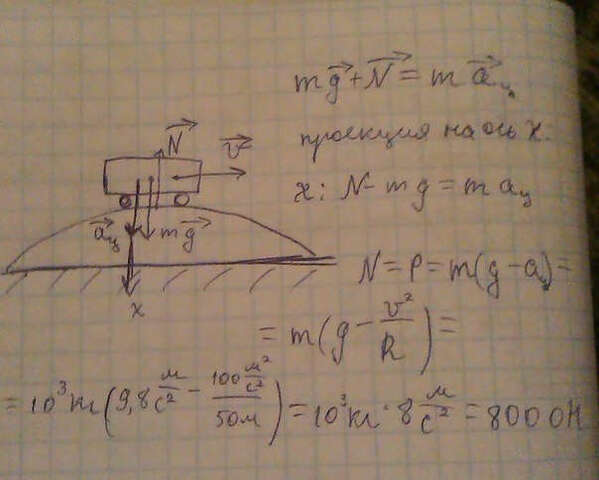 mg⃗ + N⃗ = m a⃗ц
проекция на ось x:
x: N - mg = m aц
N⃗
v⃗
a⃗ц
mg⃗
x
N = P = m(g - aц) =
= m(g - v²/R) =
= 10³ кг (9,8 м/с² - 100 м²/с² / 50 м) = 10³ кг · 8 м/с² = 8000 Н